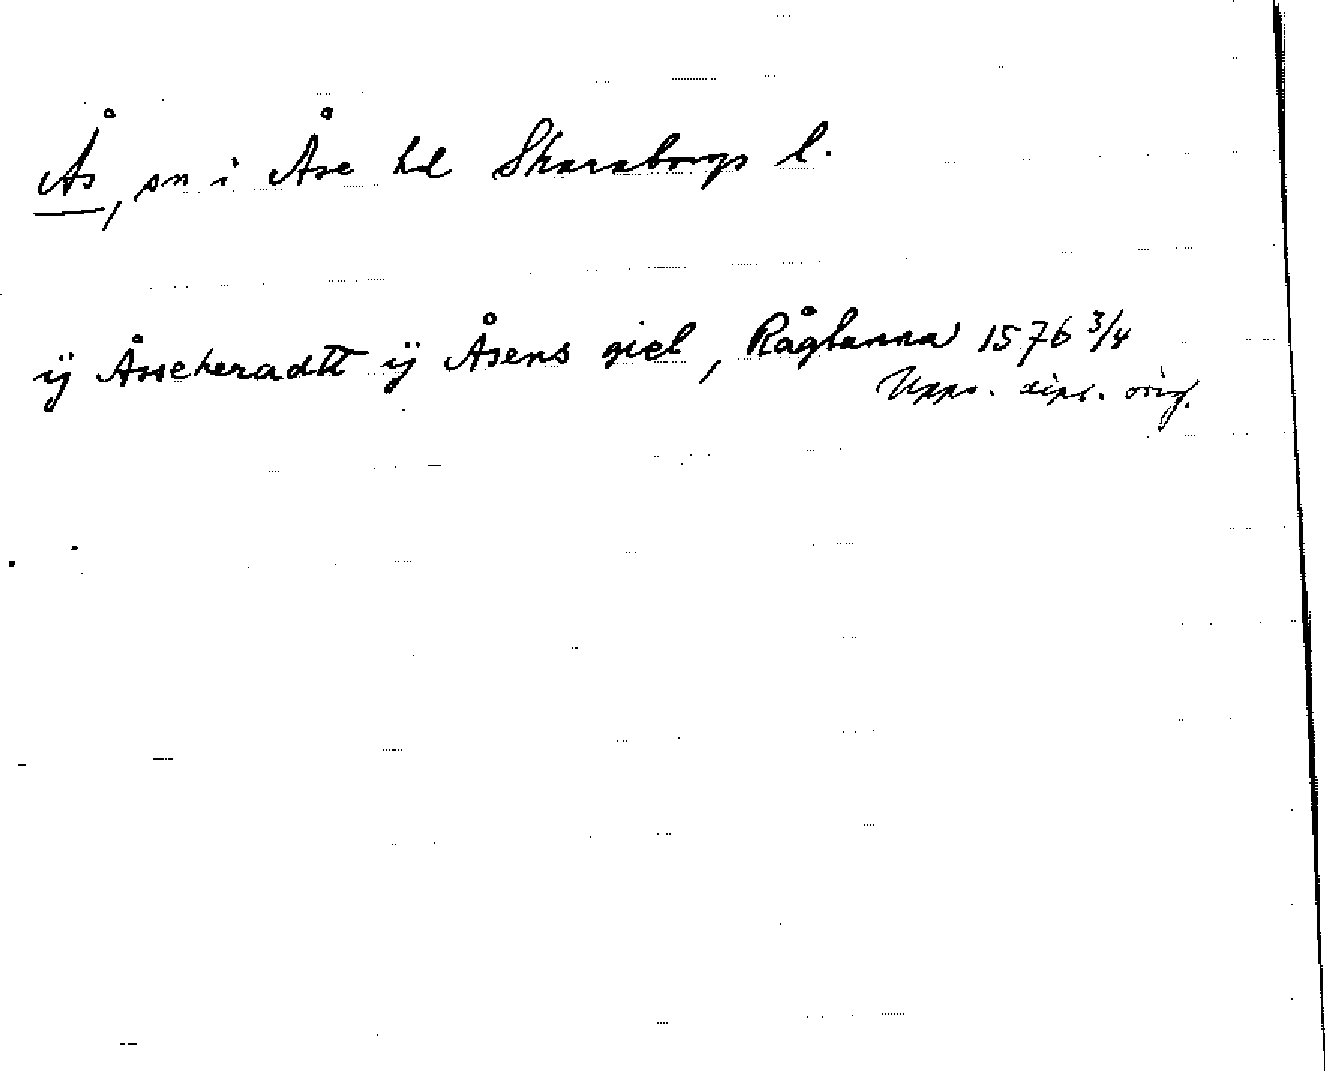 Ås, sn i Åse hd Skaraborgs l.
ÿ Åsseheradtt ÿ Åsens giel, Råglanna 1576 3/4
Upps. dipl. orig.